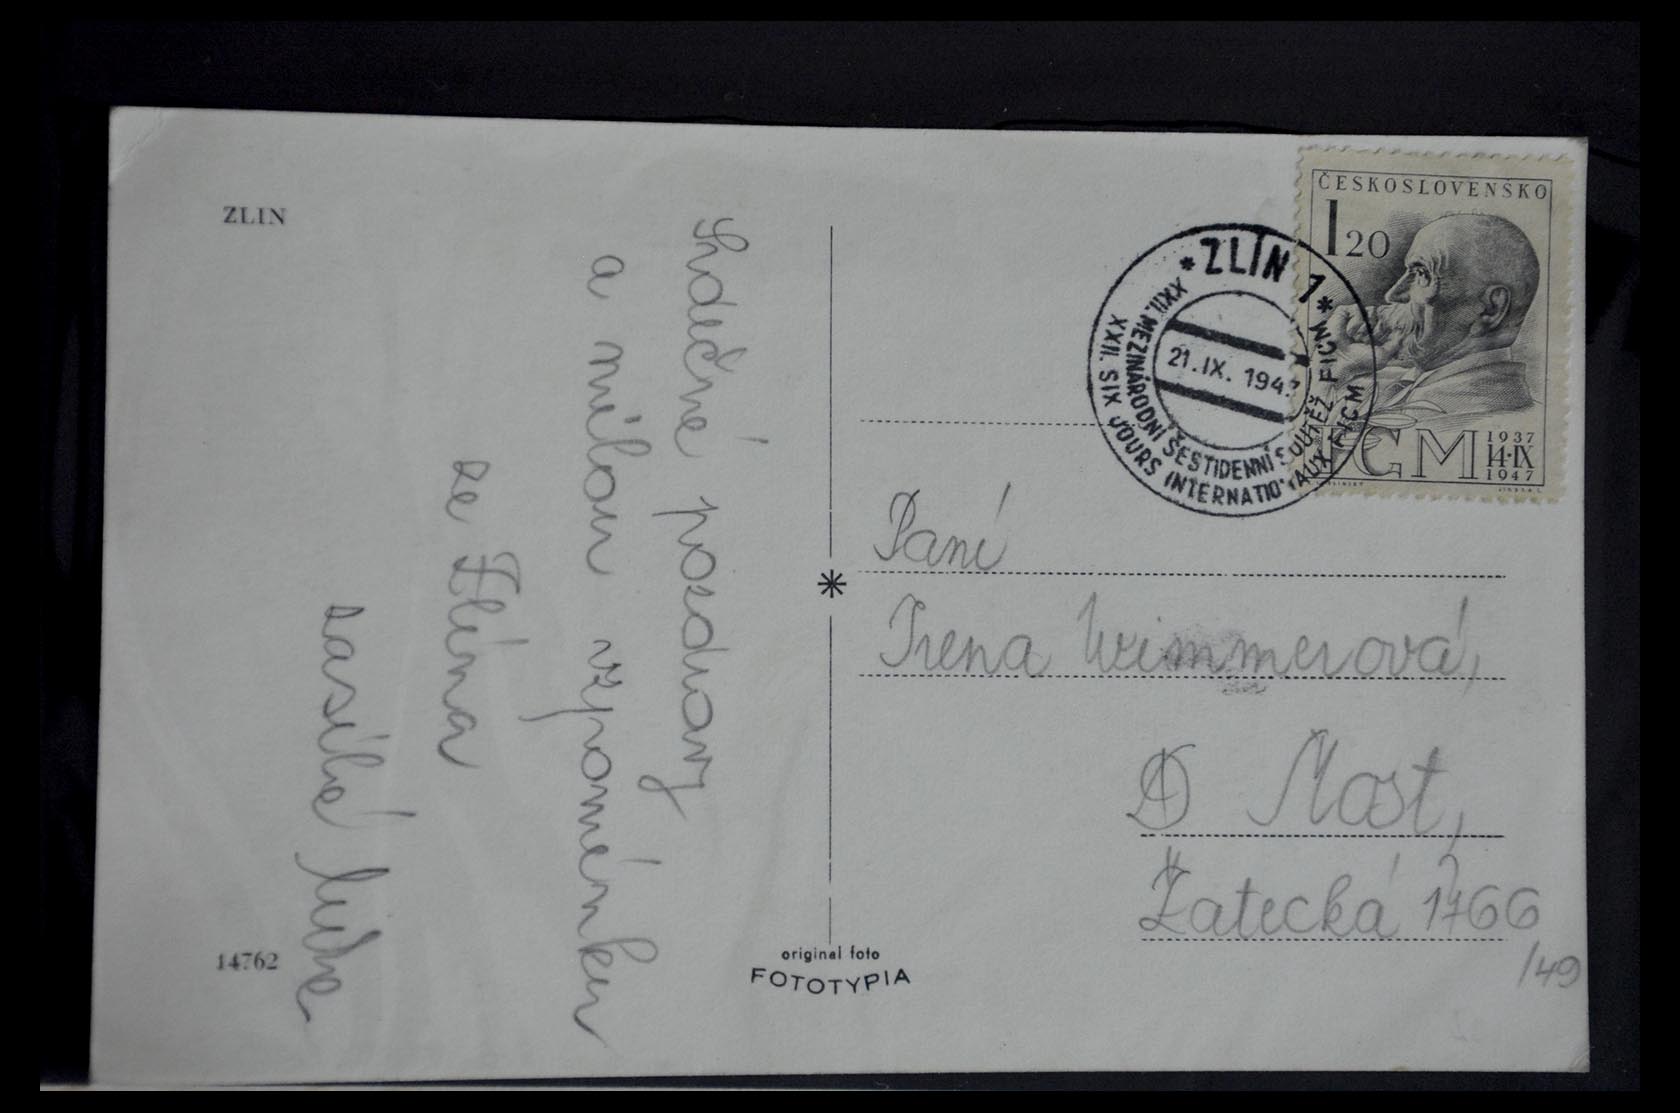 ZLIN
Srdečné pozdravy
a milou vzpomínku
ze Zlína
zasílá
14762
original foto
FOTOTYPIA
* ZLÍN 1 *
21. IX. 194
XXII. MEZINÁRODNÍ ŠESTIDENNÍ SOUTĚŽ FICM
XXII. SIX JOURS INTERNATIONAUX FICM
ČESKOSLOVENSKO
1 20
TGM
1937
14·IX
1947
Paní
Irena Wimmerová,
Most,
Žatecká 1766
/49